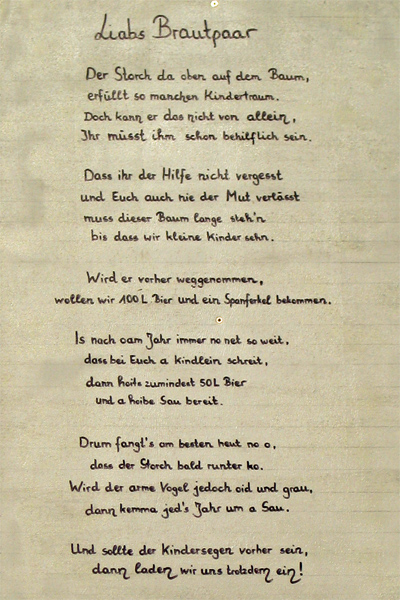 Liabs Brautpaar
Der Storch da oben auf dem Baum,
erfüllt so manchen Kindertraum.
Doch kann er das nicht von allein,
Ihr müsst ihm schon behilflich sein.
Dass ihr der Hilfe nicht vergesst
und Euch auch nie der Mut verlässt
muss dieser Baum lange steh'n
bis dass wir kleine Kinder sehn.
Wird er vorher weggenommen,
wollen wir 100 L Bier und ein Spanferkel bekommen.
Is nach oam Jahr immer no net so weit,
dass bei Euch a Kindlein schreit,
dann hoits zumindest 50 L Bier
und a hoibe Sau bereit.
Drum fangt's am besten heut no o,
dass der Storch bald runter ko.
Wird der arme Vogel jedoch oid und grau,
dann kemma jed's Jahr um a Sau.
Und sollte der Kindersegen vorher sein,
dann laden wir uns trotzdem ein!